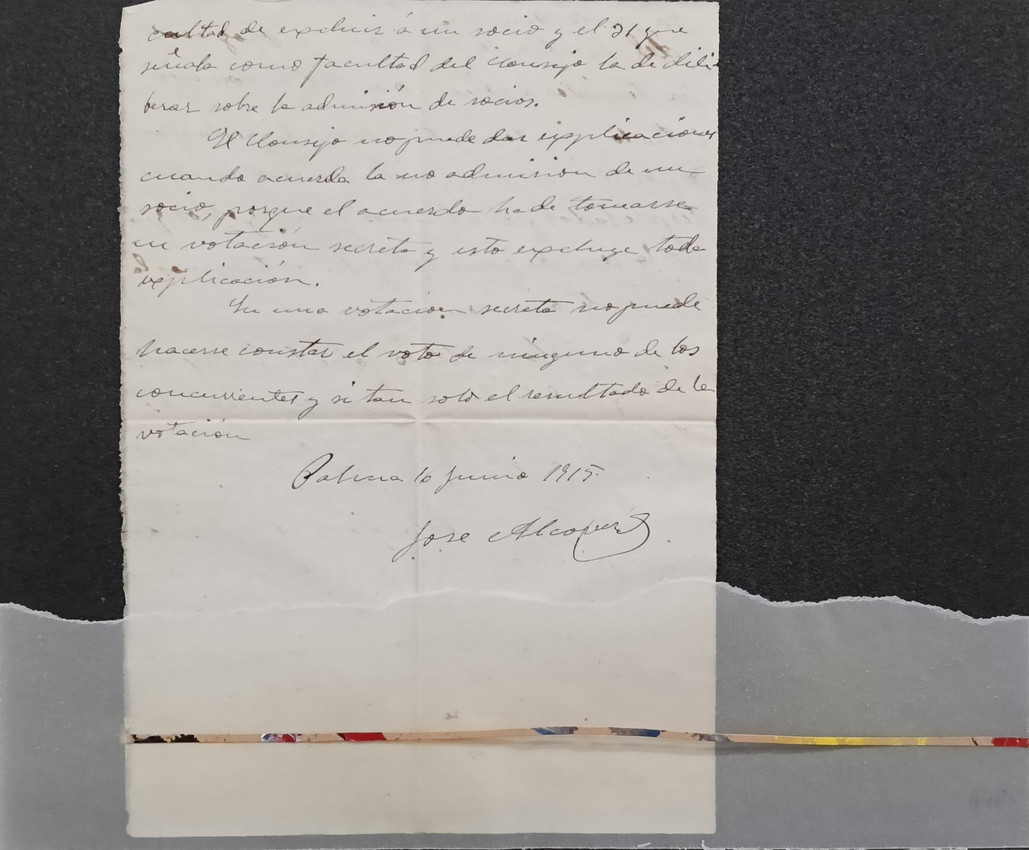 cultad de excluir á un socio y el 21 que
señala como facultad del Consejo la de deli-
berar sobre la admisión de socios.
El Consejo no puede dar explicaciones
cuando acuerda la no admision de un
socio, porque el acuerdo ha de tomarse
en votación secreta y esto excluye toda
explicación.
En una votacion secreta no puede
hacerse constar el voto de ninguno de los
concurrentes y si tan solo el resultado de la
votación
Palma 10 Junio 1915.
José Alcover